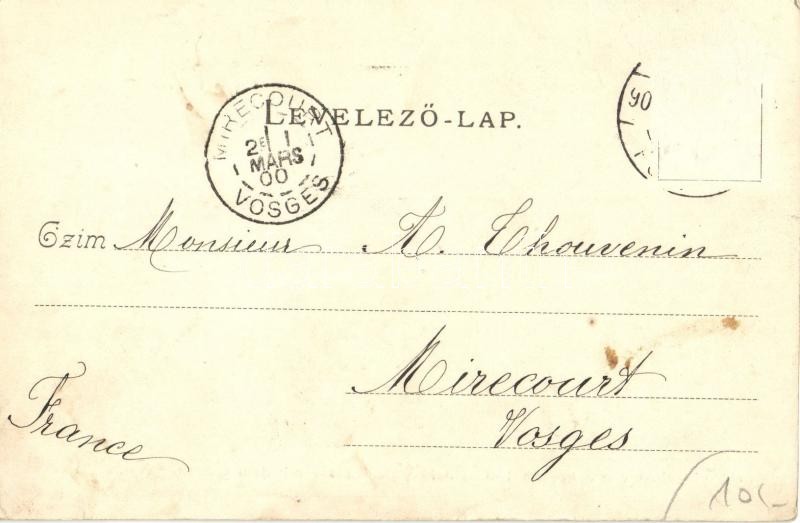 LEVELEZŐ-LAP.
MIRECOURT
2E 1
MARS
00
VOSGES
90
Czim Monsieur A. Thouvenin
Mirecourt
Vosges
France
10.-